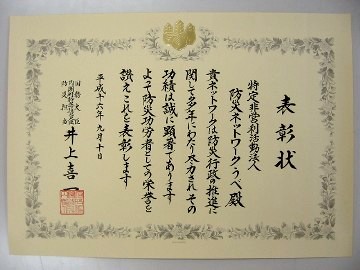 表彰状
特定非営利活動法人
防災ネットワーク・うべ殿
貴ネットワークは防災行政の推進に
関して多年にわたり尽力されその
功績は誠に顕著であります
よって防災功労者としての栄誉を
讃えこれを表彰します
平成十六年九月十日
国務大臣
防災担当
井上喜一